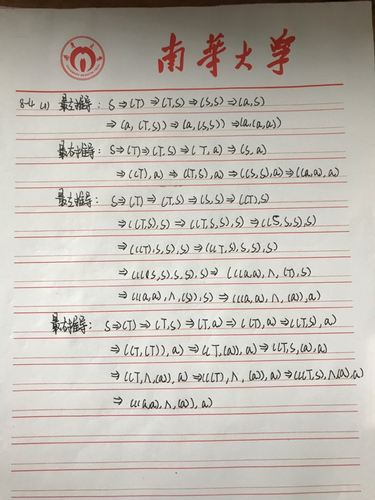 南華大学
8-4 (1) 最左推导: S⇒(T)⇒(T,S)⇒(S,S)⇒(a,S)
⇒(a,(T,S))⇒(a,(S,S))⇒(a,(a,a))
最右推导: S⇒(T)⇒(T,S)⇒(T,a)⇒(S,a)
⇒((T),a)⇒((T,S),a)⇒((S,S),a)⇒((a,a),a)
最左推导: S⇒(T)⇒(T,S)⇒(S,S)⇒((T),S)
⇒((T,S),S)⇒((T,S,S),S)⇒((S,S,S),S)
⇒(((T),S,S),S)⇒(((T,S),S,S),S)
⇒(((S,S),S,S),S)⇒(((a,a),∧,(T),S)
⇒(((a,a),∧,(S)),S)⇒(((a,a),∧,(a)),a)
最右推导: S⇒(T)⇒(T,S)⇒(T,a)⇒((T),a)⇒((T,S),a)
⇒((T,(T)),a)⇒((T,(a)),a)⇒((T,S,(a),a)
⇒((T,∧,(a)),a)⇒(((T),∧,(a)),a)⇒(((T,S),∧,(a),a)
⇒(((a,a),∧,(a)),a)